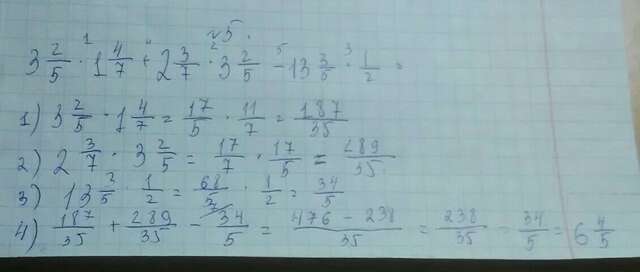 №5.
3 2/5 · 1 4/7 + 2 3/7 · 3 2/5 - 13 3/5 · 1/2 =
1) 3 2/5 · 1 4/7 = 17/5 · 11/7 = 187/35
2) 2 3/7 · 3 2/5 = 17/7 · 17/5 = 289/35.
3) 13 3/5 · 1/2 = 68/5 · 1/2 = 34/5
4) 187/35 + 289/35 - 34/5 = 476 - 238/35 = 238/35 = 34/5 = 6 4/5